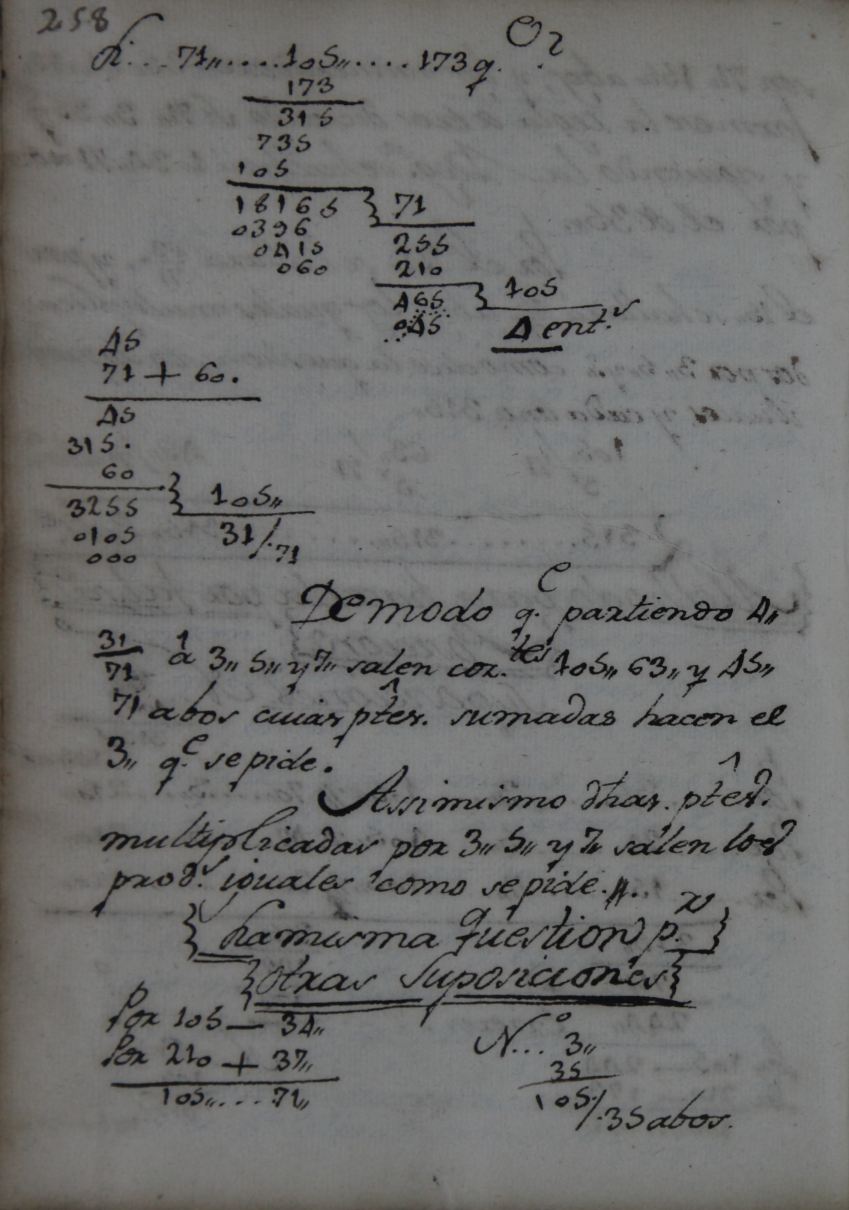 258
R... 71,,.....105,,.....173 q.e Or?
173
315
735
105
18165 } 71
0396 255
0415 210
060 465 } 105
045 4 ent.s
45
71 + 60.
45
315.
60
3255 } 105,,
0105 31/71
000
De modo q.e partiendo 4,,
31/71 à 3,, 5,, y 7,, salen cor.tes 105,, 63,, y 45,,
71 abos cuias ptes. sumadas hacen el
3,, q.e se pide.
Assimismo dhas. ptes.
multiplicadas por 3,, 5,, y 7,, salen los
prod.s iguales como se pide.,,.
{ La misma question p.r }
{ otras suposiciones }
Por 105 — 34,,
Por 210 + 37,,
105,,....71,,
N.o... 3,,
35
105/.35 abos.